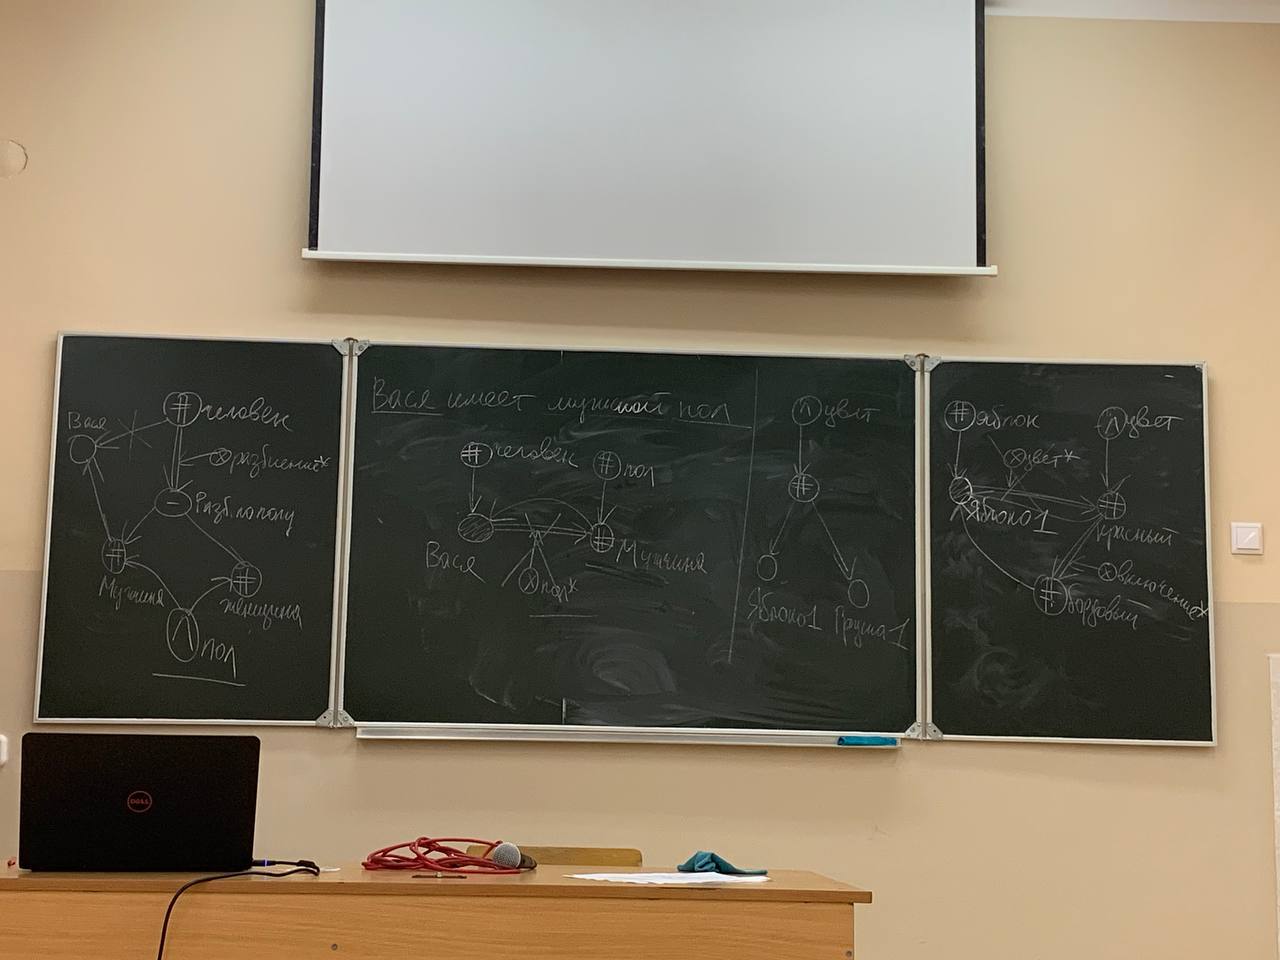 Вася
человек
разбиение*
Разб. по полу
Мужчина
женщина
пол
Вася имеет мужской пол
человек
пол
Вася
Мужчина
пол*
цвет
Яблоко1
Груша1
яблок
цвет
цвет*
Яблоко1
красный
включение*
бордовый
DELL